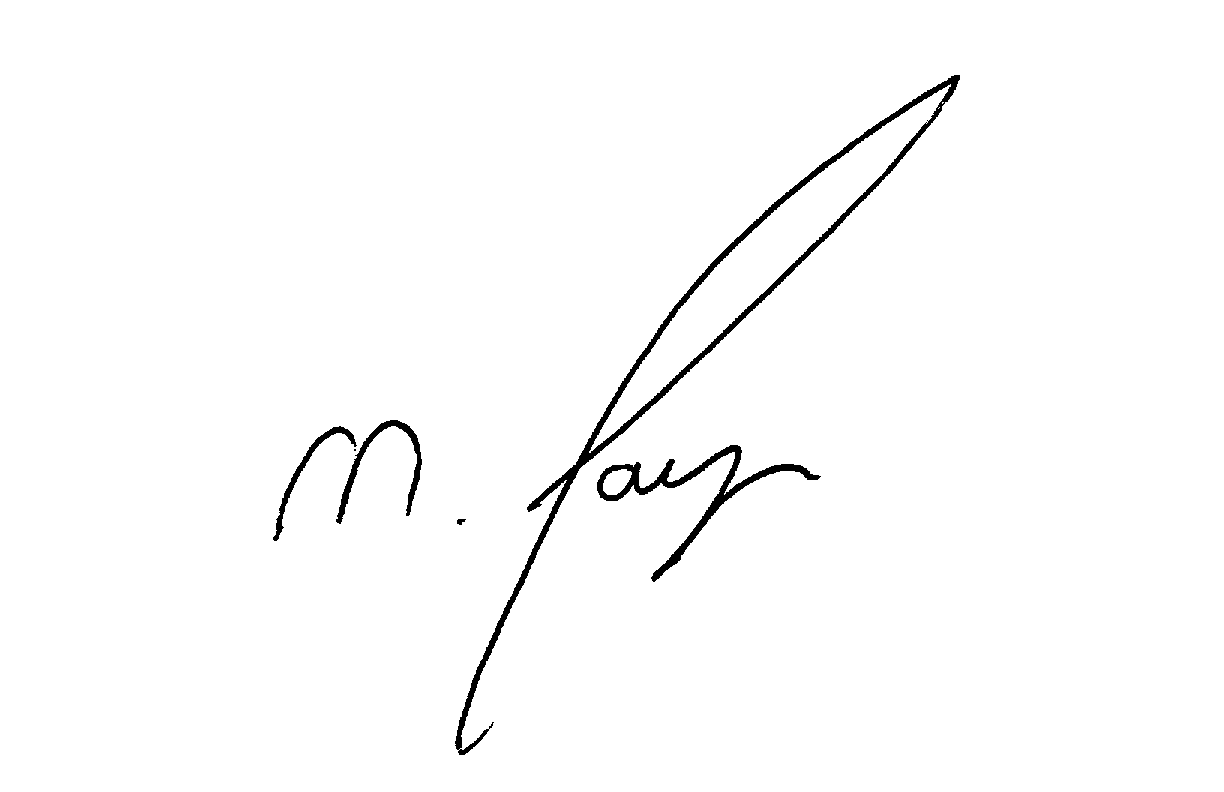 M. Fay